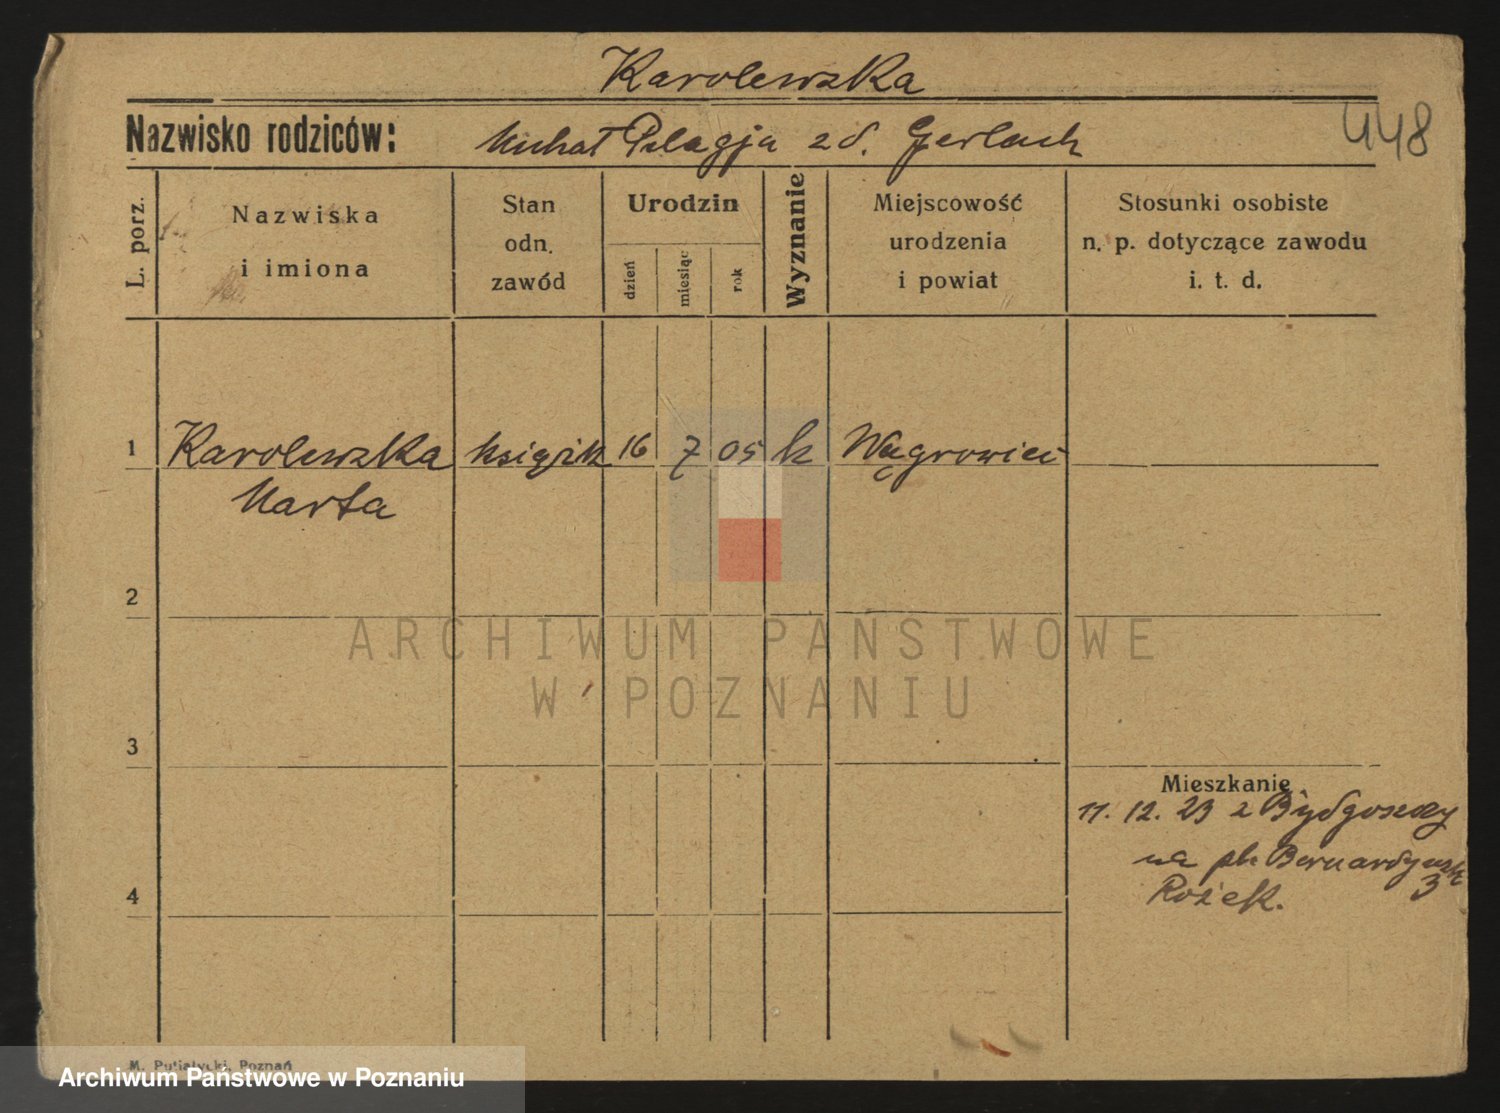 Karolewska
448
Nazwisko rodziców: Michał Pelagja z d. Gerlach
L. porz.
Nazwiska
i imiona
Stan
odn.
zawód
Urodzin
dzień
miesiąc
rok
Wyznanie
Miejscowość
urodzenia
i powiat
Stosunki osobiste
n. p. dotyczące zawodu
i. t. d.
1 Karolewska książk 16 7 05 k Wągrowiec
Marta
2
ARCHIWUM PAŃSTWOWE
W POZNANIU
3
Mieszkanie
11. 12. 23 z Bydgoszczy
na pl. Bernardyńsk
3
4
Rożek.
M. Putiatycki, Poznań
Archiwum Państwowe w Poznaniu